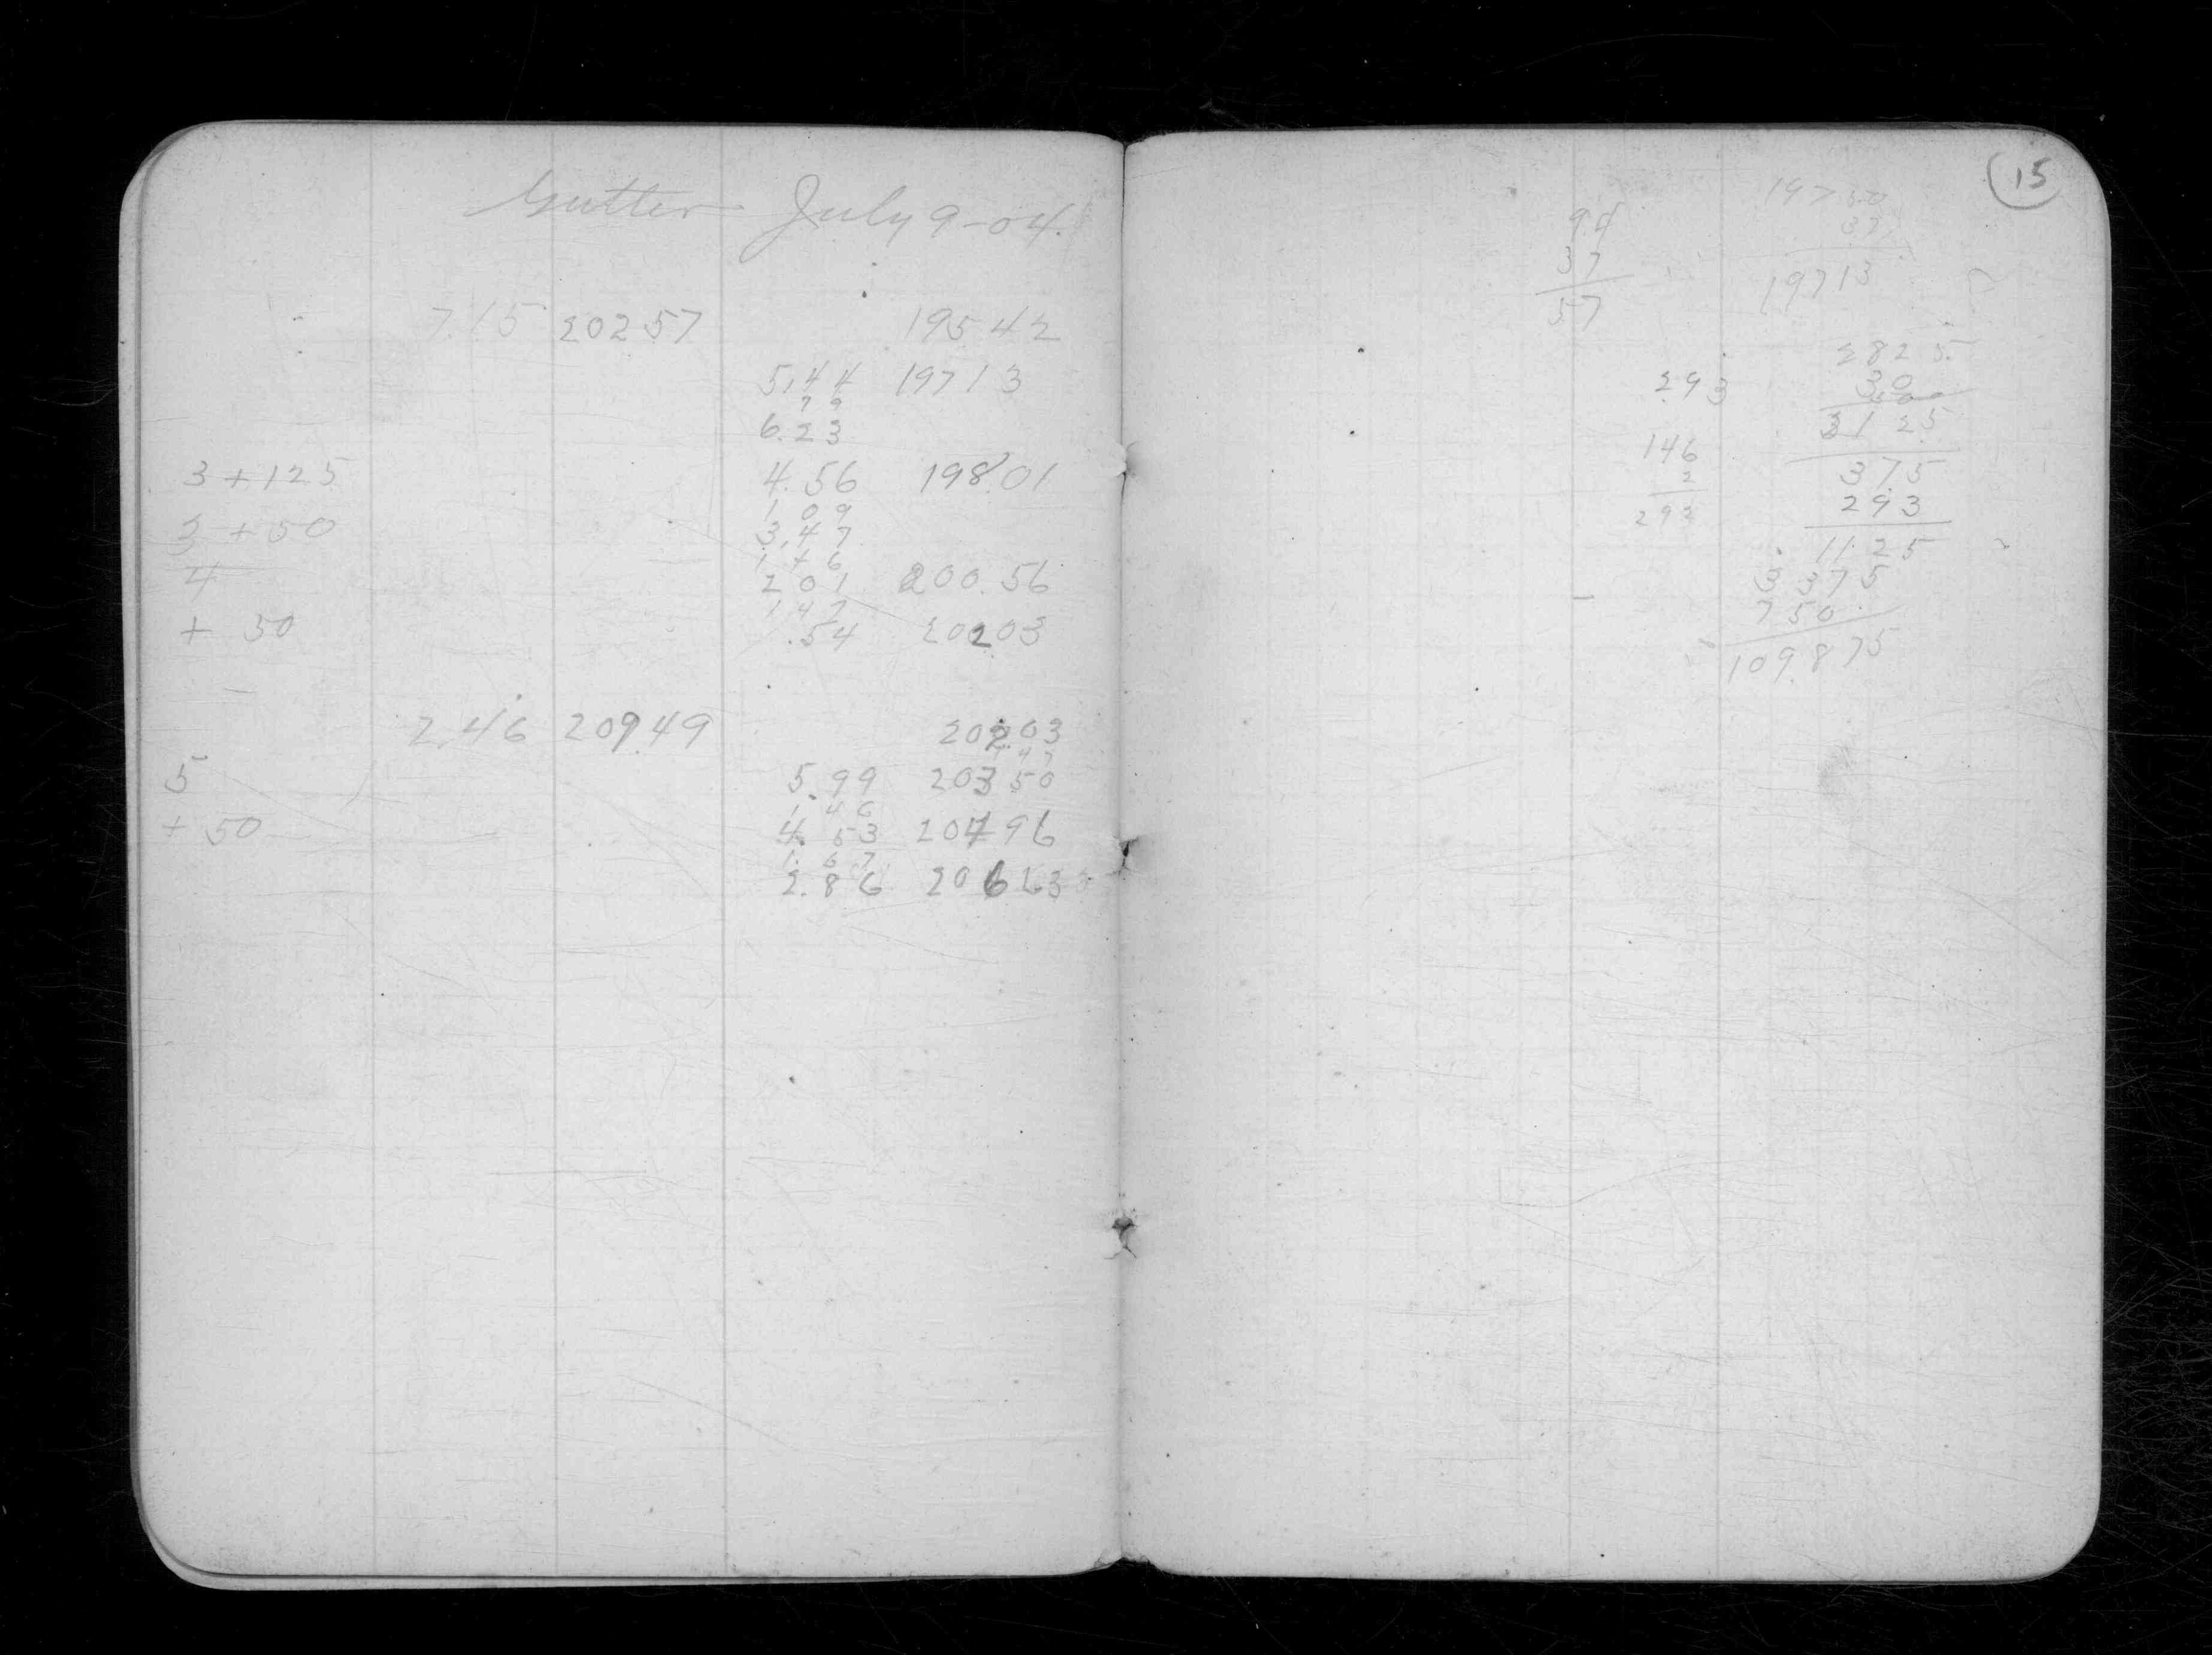 Gutter July 9-04.
7.15 202 57 195 42
5,44 197 13
7 9
6.23
3 + 125 4.56 198.01
1 0 9
3 + 50 3,47
1 4 6
4 2 01 200.56
1 4 7
+ 50 .54 20203
2.46 209.49 20203
1 4 7
5 5.99 203 50
1 4 6
+ 50 4. 53 204 96
1. 6 7
2. 8 6 206 63
15
94
37
57
197 50
37
197 13
2825
30
3125
293
146
2
292
375
293
11 25
3 375
750
109.875